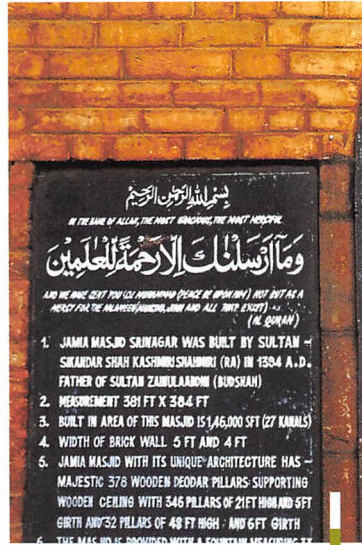 بِسْمِ اللهِ الرَّحْمٰنِ الرَّحِيْمِ
IN THE NAME OF ALLAH, THE MOST GRACIOUS, THE MOST MERCIFUL
وَمَآ اَرْسَلْنٰكَ اِلَّا رَحْمَةً لِّلْعٰلَمِيْنَ
AND WE HAVE SENT YOU (O! MUHAMMAD (PEACE BE UPON HIM) NOT BUT AS A
MERCY FOR THE ALAMEEN (MANKIND, JINN AND ALL THAT EXIST)
(AL QURAN)
1. JAMIA MASJID SRINAGAR WAS BUILT BY SULTAN -
SIKANDAR SHAH KASHMIRI SHAHMIRI (RA) IN 1394 A.D.
FATHER OF SULTAN ZAINULAABDIN (BUDSHAH)
2. MEASUREMENT 381 FT X 384 FT
3. BUILT IN AREA OF THIS MASJID IS 1,46,000 SFT (27 KANALS)
4. WIDTH OF BRICK WALL 5 FT AND 4 FT
5. JAMIA MASJID WITH ITS UNIQUE ARCHITECTURE HAS -
MAJESTIC 378 WOODEN DEODAR PILLARS SUPPORTING
WOODEN CEILING WITH 346 PILLARS OF 21 FT HIGH AND 5FT
GIRTH AND 32 PILLARS OF 48 FT HIGH - AND 6FT GIRTH
6. THE MASJID IS PROVIDED WITH A FOUNTAIN MEASURING 33